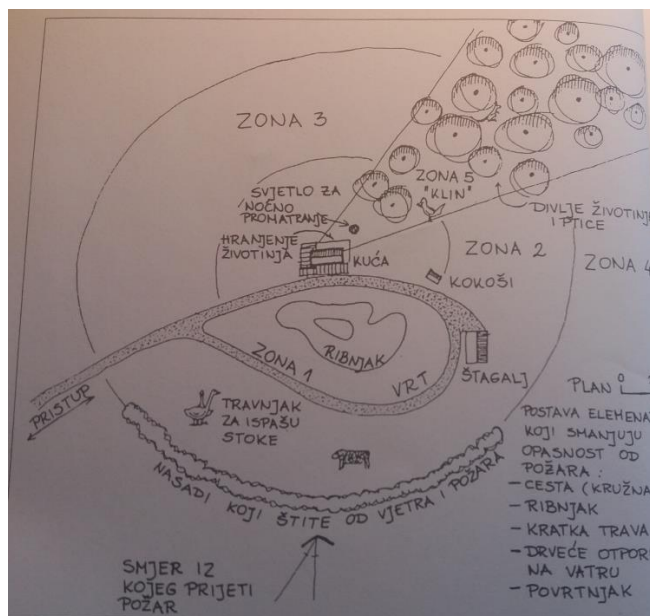 ZONA 3
ZONA 5
"KLIN"
SVJETLO ZA
NOĆNO
PROMATRANJE
DIVLJE ŽIVOTINJE
I PTICE
HRANJENJE
ŽIVOTINJA
KUĆA
ZONA 2
ZONA 4
KOKOŠI
RIBNJAK
ZONA 1
VRT
ŠTAGALJ
PRISTUP
TRAVNJAK
ZA ISPAŠU
STOKE
NASADI KOJI ŠTITE OD VJETRA I POŽARA
SMJER IZ
KOJEG PRIJETI
POŽAR
PLAN 0
POSTAVA ELEMENA
KOJI SMANJUJU
OPASNOST OD
POŽARA:
- CESTA (KRUŽNA
- RIBNJAK
- KRATKA TRAVA
- DRVEĆE OTPOR
NA VATRU
- POVRTNJAK